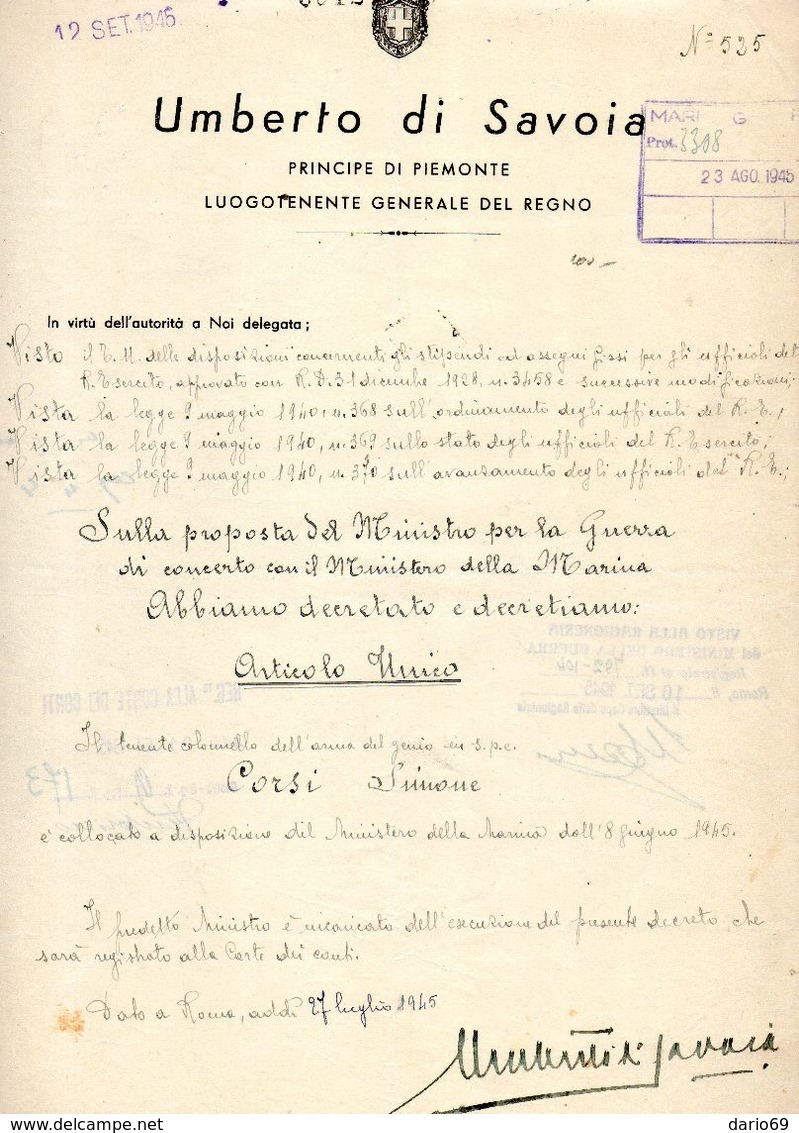 12 SET. 1945
N° 525
Umberto di Savoia
PRINCIPE DI PIEMONTE
LUOGOTENENTE GENERALE DEL REGNO
MARI G
Prot. 3308
23 AGO. 1945
In virtù dell'autorità a Noi delegata;
Visto il T. U. delle disposizioni concernenti gli stipendi ed assegni fissi per gli ufficiali del
R. Esercito, approvato con R. D. 31 dicembre 1928, n. 3458 e successive modificazioni;
Vista la legge 9 maggio 1940, n. 368 sull'ordinamento degli ufficiali del R. E.;
Vista la legge 9 maggio 1940, n. 369 sullo stato degli ufficiali del R. Esercito;
Vista la legge 9 maggio 1940, n. 370 sull'avanzamento degli ufficiali del R. E.;
Sulla proposta del Ministro per la Guerra
di concerto con il Ministero della Marina
Abbiamo decretato e decretiamo:
Articolo Unico
VISTO ALLA RAGIONERIA
del MINISTERO DELLA GUERRA
Roma, 10 SET. 1945
REG.TO ALLA CORTE DEI CONTI
173
Il tenente colonnello dell'arma del genio in s.p.e.
Corsi Simone
è collocato a disposizione del Ministero della Marina dall'8 giugno 1945.
Il predetto Ministro è incaricato dell'esecuzione del presente decreto che
sarà registrato alla Corte dei conti.
Dato a Roma, addì 27 luglio 1945
Umberto di Savoia
delcampe.net
dario69